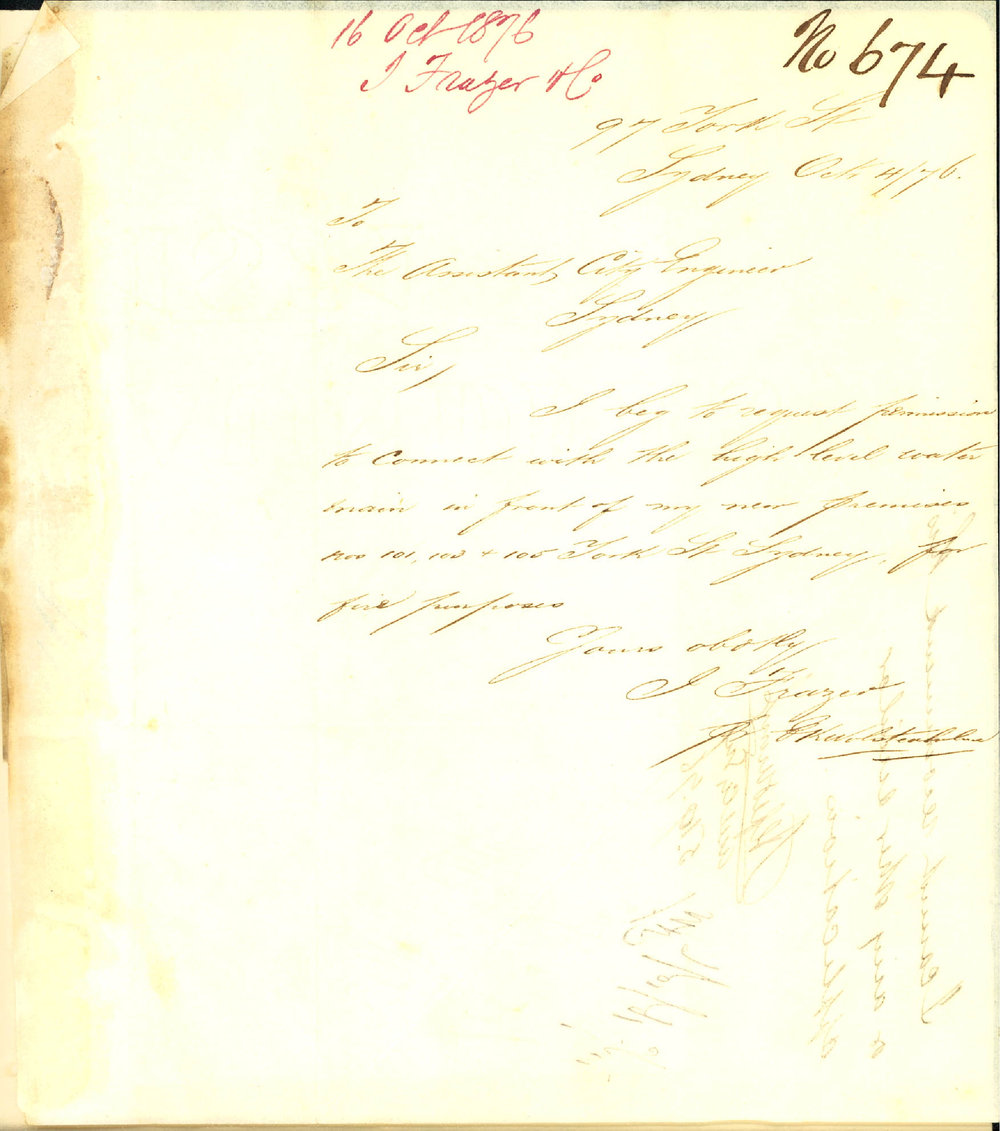 16 Oct 1876
J Frazer & Co
No 674
97 York St
Sydney Oct 4/76.
To
The Assistant City Engineer
Sydney
Sir,
I beg to request permission
to connect with the high level water
main in front of my new premises
nos 101, 103 & 105 York St Sydney, for
fire purposes
Yours obdtly
J Frazer